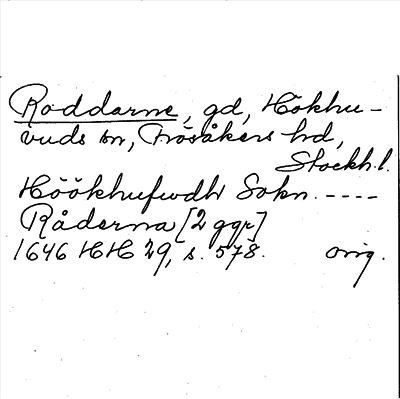 Roddarne, gd, Hökhu-
vuds sn, Frösåkers hd,
Stockh. l.
Höökhufwdh Sokn. ----
Råderna [2 ggr]
1646 HH 29, s. 578. orig.